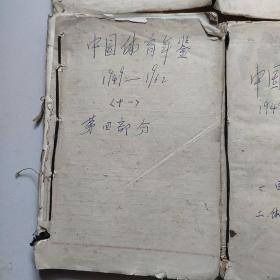 中国体育年鉴
1949—1962
<十一>
第四部分
中国
194
二、体